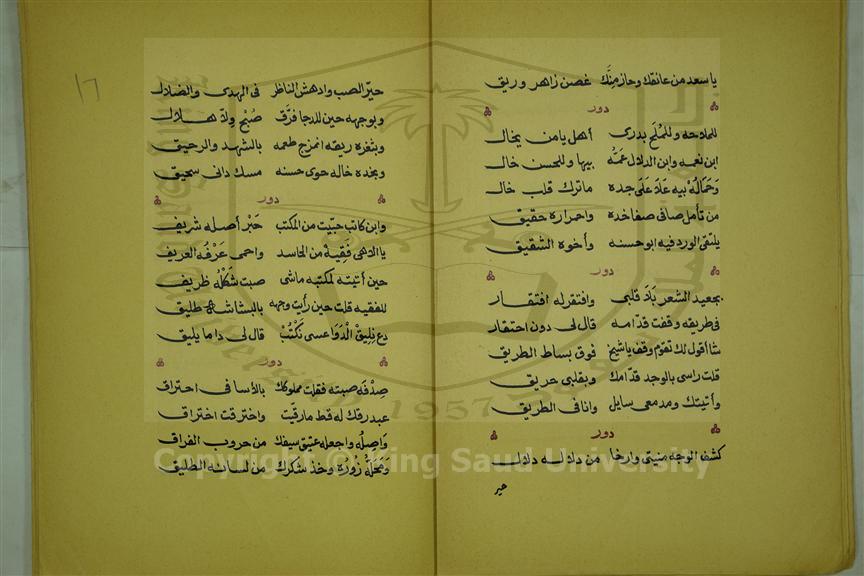 يا سعد من عانقك وحاز منّك غصن زاهر وريق
دور
للملاحه وللملَح بدرى أهل يا من يخال
ابن نعمه وابن الدلال عمّه بيها وللحسن خال
وجماله بيه علا على جده ما ترك قلب خال
من تأمل صافى صفا خده واحمراره حقيق
يلتقى الورد فيه ابو حسنه وأخوه الشقيق
دور
بجعيد الشعر بلا قلبى وافتقر له افتقار
فى طريقه وقفت قدامه قال لى دون احتقار
شا أقول لك تقوم وقف يا شيخ فوق بساط الطريق
قلت راسى بالوجد قدامك وبقلبى حريق
وأتيتك ومدمعى سايل وانا فى الطريق
دور
كشف الوجه منيتى وارخا من دلاله دلال
حير
١٦
حيّر الصب وادهش الناظر فى الهدى والضلال
وبوجهه حين للدجا فرّق صُبْح ولاّ هلال
وبثغره ريقه انمزج طعمه بالشهد والرحيق
وبخده خاله حوى حسنه مسك دانى سحيق
دور
وابن كاتب حبّيت من المكتب حَبْر أصله شريف
يا الاهى فقيهْ من الحاسد واحمى عَرْفُه العريف
حين أتيته لمكتبه ماشى صبت شَكْلُه ظريف
للفقيه قلت حين رأيت وجهه بالبشاشه طليق
دع نليق الدوا عسى نَكْتُبْ قال لى دا ما يليق
دور
صِدْفَه صبته فقلت مملوكك بالأسا فى احتراق
عبد رقك له قط ما رقّيت واخترقت اختراق
وَاصِلُه واجعله عتيق سيفك من حروب الفراق
زُورُهْ وخذ شكرك من لسانه الطليق
Copyright © King Saud University
1957